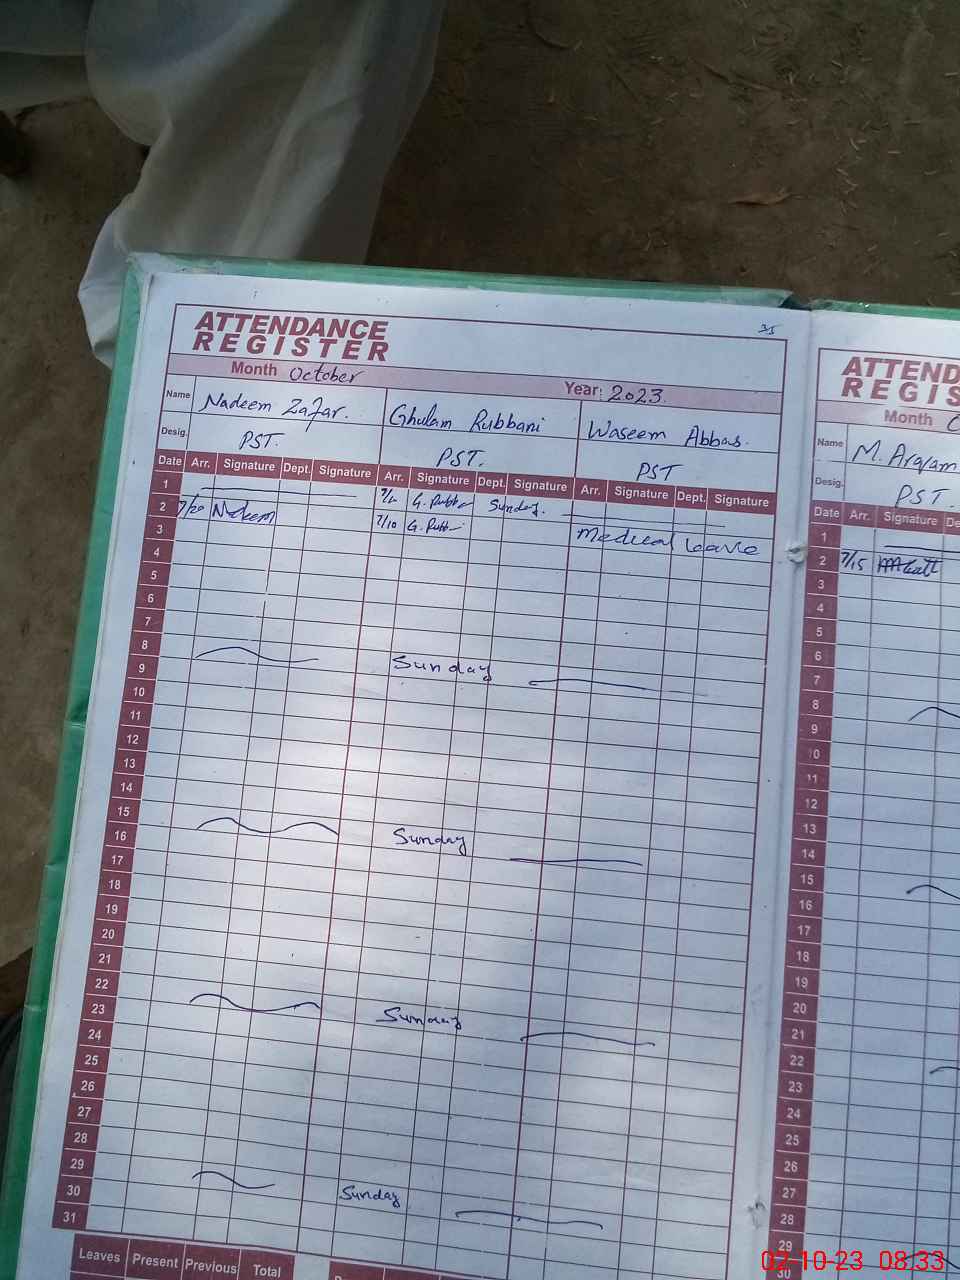 35
ATTENDANCE
REGISTER
Month October Year: 2023
Name Nadeem Zafar. Ghulam Rubbani Waseem Abbas.
Desig. PST. PST. PST
Date Arr. Signature Dept. Signature Arr. Signature Dept. Signature Arr. Signature Dept. Signature
1 Sunday.
2 7/20 Nadeem 7/10 Medical Leave
3
4
5
6
7
8 Sunday
9
10
11
12
13
14
15 Sunday
16
17
18
19
20
21
22 Sunday
23
24
25
26
27
28
29 Sunday
30
31
Leaves Present Previous Total
ATTEND
REGIS
Month
Name
Desig. PST.
Date Arr. Signature De
1
2 7/15
3
4
5
6
7
8
9
10
11
12
13
14
15
16
17
18
19
20
21
22
23
24
25
26
27
28
29
30
02-10-23 08:33